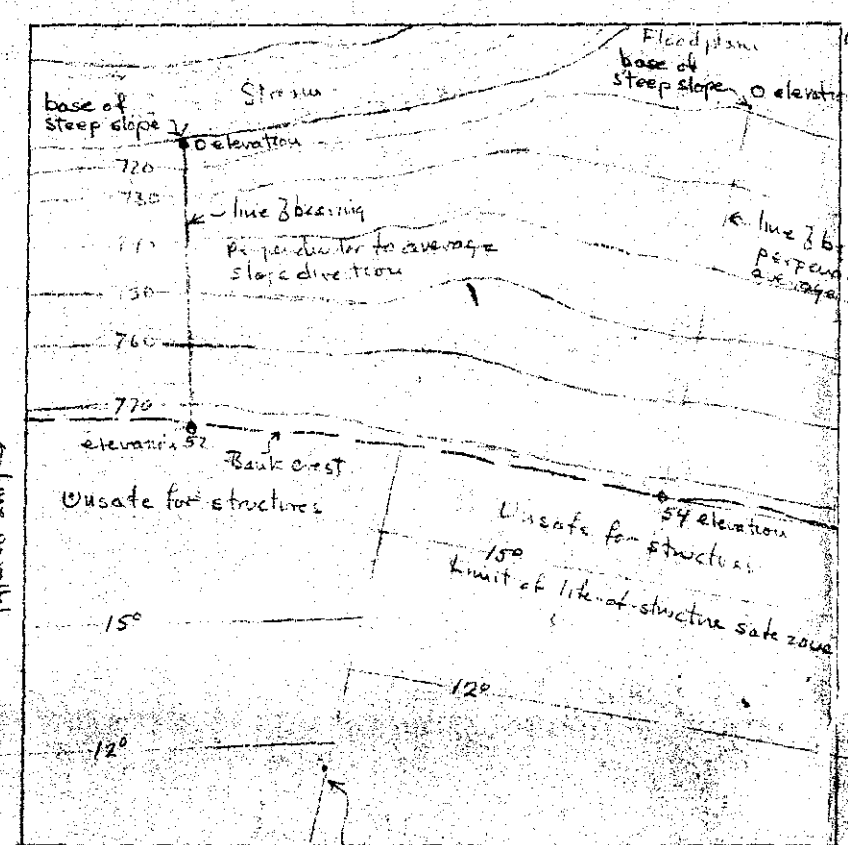 Floodplain
base of
steep slope O elevation
Stream
base of
steep slope
O elevation
720
730
line of bearing
perpendicular to average
slope direction
line
average
760
770
elevation 52
Bank crest
Unsafe for structures
54 elevation
Unsafe for structures
15°
Limit of life-of-structure safe zone
15°
12°
12°